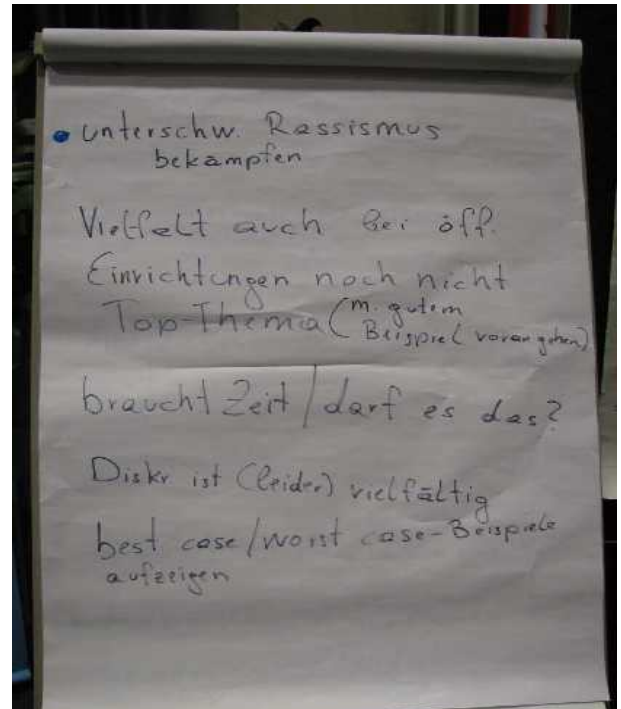 • unterschw. Rassismus
bekämpfen
Vielfalt auch bei öff.
Einrichtungen noch nicht
Top-Thema (m. gutem
Beispiel vorangehen)
braucht Zeit / darf es das?
Diskr ist (leider) vielfältig
best case/worst case-Beispiele
aufzeigen